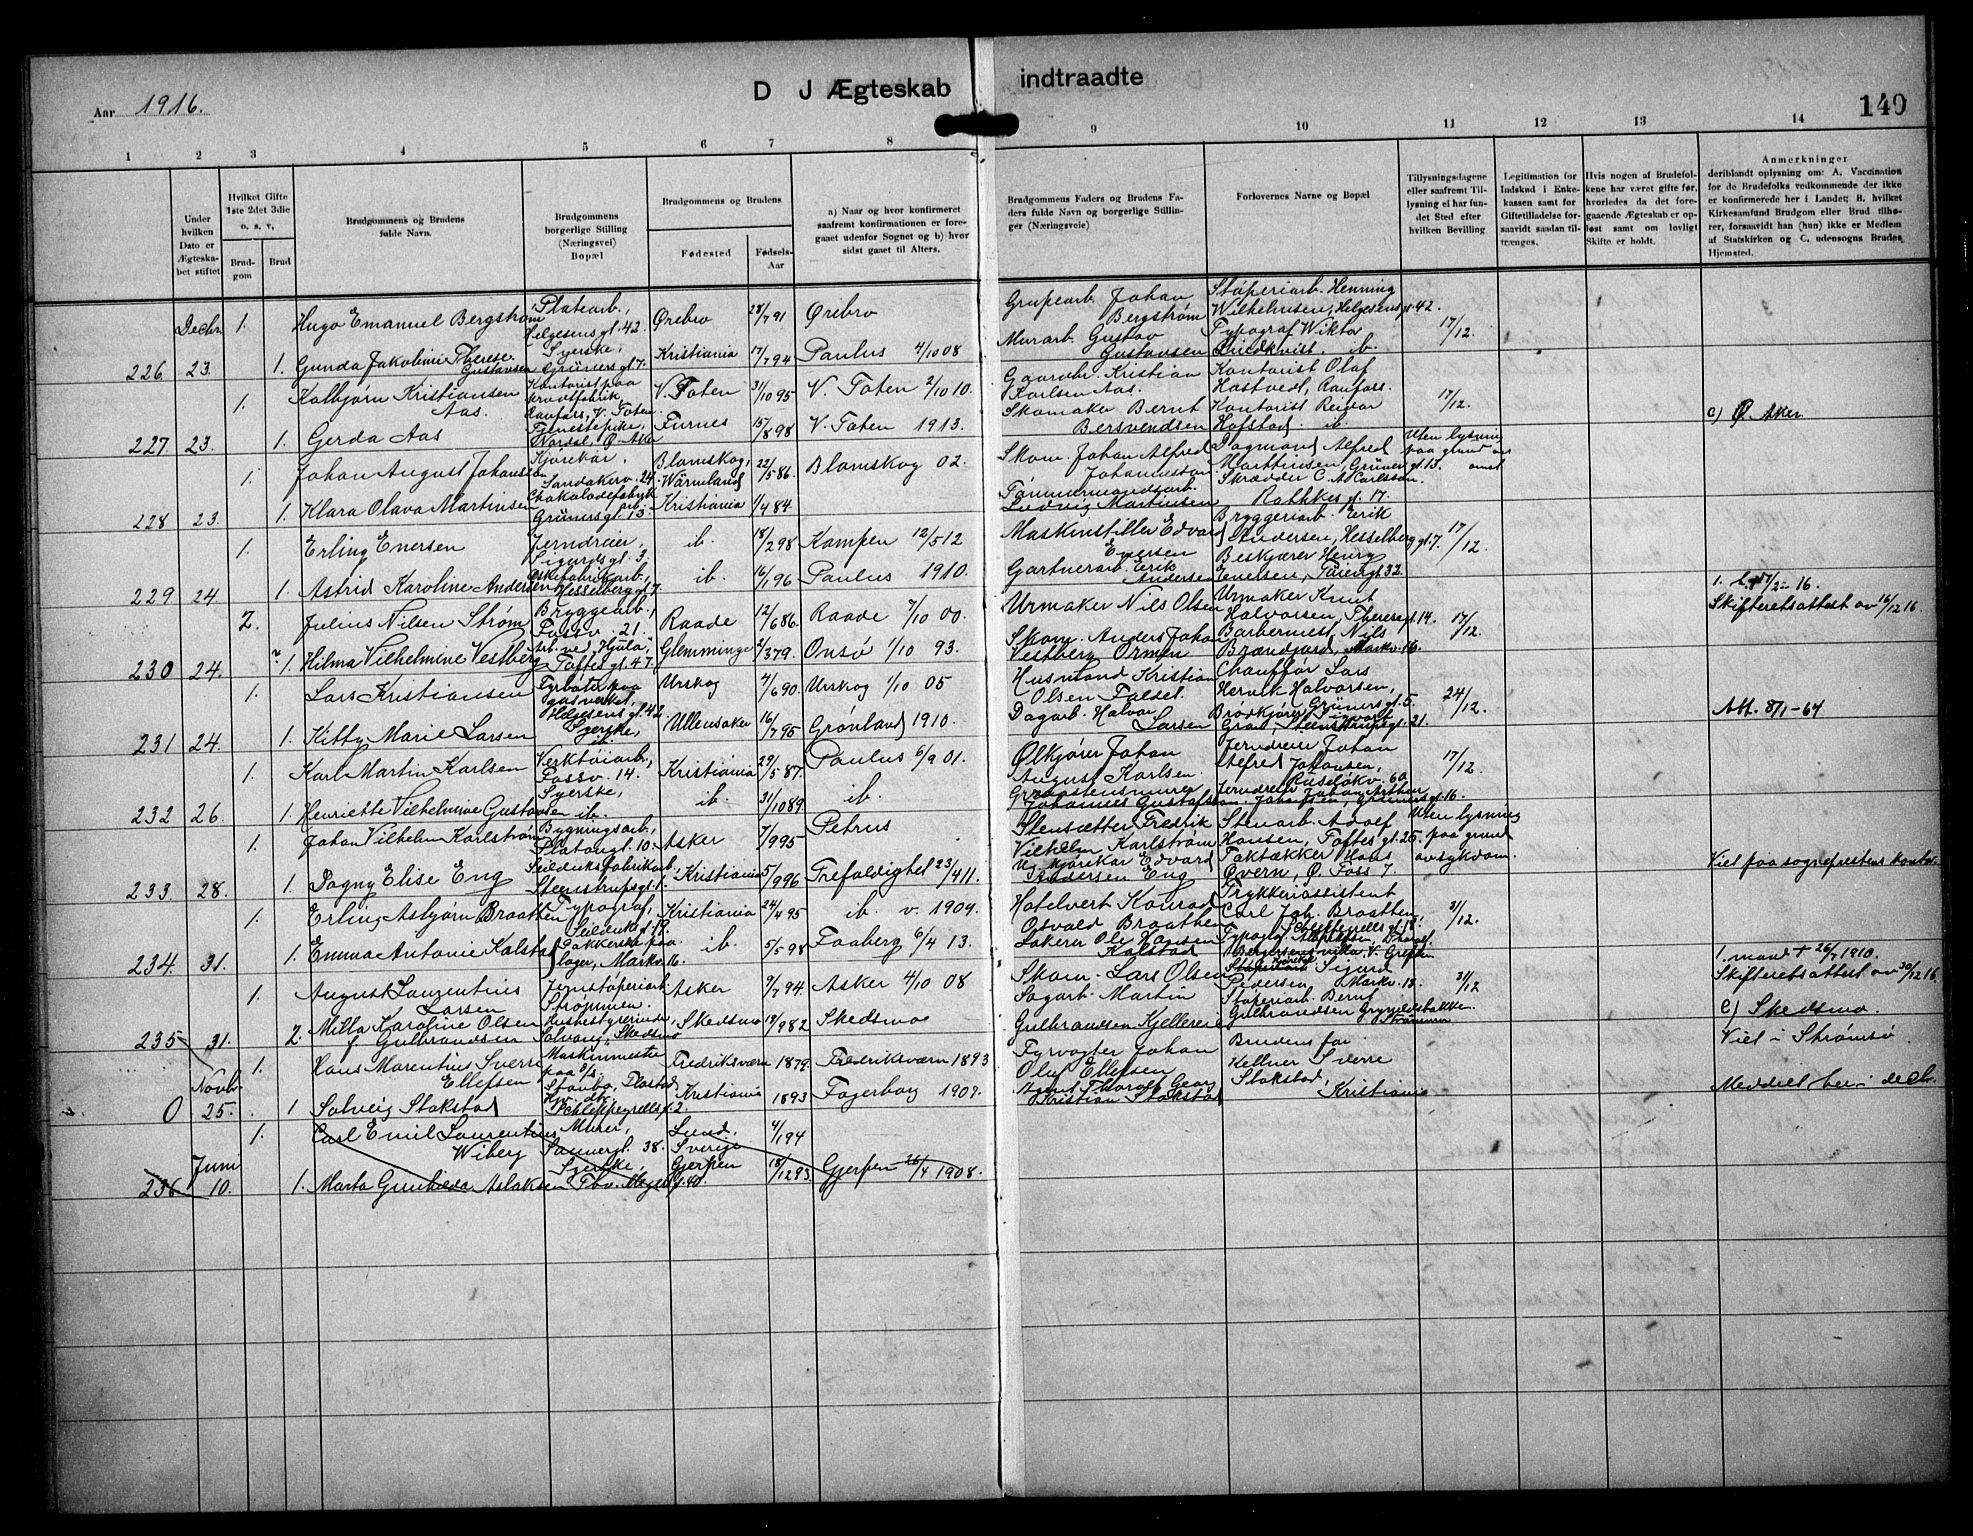 Aar 1916.
D J Ægteskab indtraadte
140
1 2 3 4 5 6 7 8 9 10 11 12 13 14
Under hvilken Dato er Ægteskabet stiftet
Hvilket Gifte 1ste 2det 3die o. s. v,
Brudgom
Brud
Brudgommens og Brudens fulde Navn.
Brudgommens borgerlige Stilling (Næringsvei) Bopæl
Brudgommens og Brudens
Fødested
Fødsels-Aar
a) Naar og hvor konfirmeret saafremt konfirmationen er foregaaet udenfor Sognet og b) hvor sidst gaaet til Alters.
Brudgommens Faders og Brudens Faders fulde Navn og borgerlige Stillinger (Næringsveie)
Forlovernes Navne og Bopæl
Tillysningsdagene eller saafremt Tillysning ei har fundet Sted efter hvilken Bevilling
Legitimation for Indskud i Enkekassen samt for Giftetilladelse forsaavidt saadan tiltrænges.
Hvis nogen af Brudefolkene har været gifte før, hvorledes da det foregaaende Ægteskab er opløst samt om lovligt Skifte er holdt.
Anmerkninger deriblandt oplysning om: A. Vaccination for de Brudefolks vedkommende der ikke er konfirmerede her i Landet; B. hvilket Kirkesamfund Brudgom eller Brud tilhører, forsaavidt han (hun) ikke er Medlem af Statskirken og C. udensogns Brudes Hjemsted.
Decbr. 1. Hugo Emanuel Bergstrøm Platearb., Helgesens gt. 42. Ørebro 28/7 91 Ørebro Grubearb. Johan Bergstrøm Støperiarb. Henning Wilhelmsen, Helgesens gt. 42. 17/12.
226. 23. 1. Gunda Jakobine Therese Gustavsen Syerske, Grüners gt. 7. Kristiania 17/7 94 Paulus 4/10 08 Murarb. Gustav Gustavsen Typograf Wiktor Lindkvist. ib.
1. Kolbjørn Kristiansen Aas. Kontorist paa krudtfabrik, Raufoss, V. Toten V. Toten 31/10 95 V. Toten 2/10 10. Gaardbr. Kristian Karlsen Aas. Kontorist Olaf Hastvedt, Raufoss. 17/12.
227 23. 1. Gerda Aas Tjenestepike, Nordal, Ø. Aker Furnes 15/8 98 V. Toten 1913. Skomaker Bernt Bersvendsen Kontorist Reidar Hofstad. ib. c) Ø. Aker.
1. Johan August Johansson Kjørekar. Sandakerv. 24. Blomskog, Wärmland 22/5 86. Blomskog 02. Skom. Johan Alfred Johannesson Dagmand Alfred Martinsen, Grüners gt. 13. Uten lysning paa grund av
228 23. 1. Klara Olava Martinsen Chokoladefabrik Grüners gt. 13. Kristiania 1/4 84. Tømmermandsarb. Ludvig Martinsen Skrædder C. A. Carlsson. Rathkes gt. 17.
1. Erling Enersen Jerndreier, Sigurds gt. 3. ib. 18/2 98 Kampen 12/5 12 Maskinstiller Edvard Enersen Bryggeriarb. Erik Andersen, Hesselberg gt. 7. 17/12.
229 24. 1. Astrid Karoline Andersen Hesselberg gt. 7. ib. 16/1 96 Paulus 1910. Gartnerarb. Erik Andersen Beskjærer Henry Enersen, Tøiengt 32.
2. Julius Nilsen Strøm Bryggearb., Fossv. 21. Raade 12/6 86. Raade 7/10 00. Urmaker Nils Olsen Urmaker Knut Halvorsen, Theresgt. 14. 17/12. 1. Skifteretsattest av 16/12 16.
230 24. 1. Hilma Vilhelmine Vestberg Arb. ved Hjula, Toftes gt. 47. Glemminge 2/3 79. Onsø 1/10 93. Skom. Anders Johan Vestberg Ørmen Barbermest. Nils Brændjord, Markv. 16.
1. Lars Kristiansen Fyrbøter paa gasverket, Helgesens gt. 42. Urskog 4/6 90. Urskog 1/10 05 Husmand Kristian Olsen Faldet. Chauffør Lars Henrik Halvorsen, Grüners gt. 5. 24/12.
231 24. 1. Kitty Marie Larsen Syerske, ib. Ullensaker 16/7 95 Grønland 1910. Dagarb. Halvor Larsen Brødkjører Sigvart Gran, Steenstrups gt. 21. Att. 8/1-64
1. Karl Martin Karlsen Verktøiarb., Fossv. 14. Kristiania 29/5 87. Paulus 6/9 01. Ølkjører Johan August Karlsen. Jerndreier Johan Alfred Johansen, Ruseløkv. 60. 17/12.
232 26. 1. Henriette Vilhelmine Gustavsen Syerske, ib. ib. 31/10 89. ib. Graastensmurer Johannes Gustafsson. Jerndreier Johan Arthur Johansen, Grüners gt. 16.
1. Johan Vilhelm Karlstrøm Bygningsarb., Platousgt. 10. Asker 7/9 95 Petrus Stensætter Fredrik Vilhelm Karlstrøm Stenarb. Adolf Hansen, Toftes gt. 25. Uten lysning paa grund av sykdom.
233. 28. 1. Dagny Elise Eng Seildugsfabrikarb. Steenstrups gt. 1. Kristiania 5/9 96 Trefoldighet 23/4 11. Kjørekar Edvard Andersen Eng Taktækker Hans Øvern, Ø. Foss 7. Viet paa sogneprestens kontor.
1. Erling Asbjørn Braatten Typograf, Seilduks gt. Kristiania 24/4 95 ib. v. 1909. Hofelvert Konrad Osvald Braathen Trykkeriassistent Carl Joh. Braatten, Schleppegrells gt. 18. 31/12.
234. 31. 1. Emma Antonie Kalstad Pakkerske paa lager, Markv. 16. ib. 5/5 98 Faaberg 6/4 13. Lakerer Ole Hansen Kalstad Typograf Bergersens villa V. Grefsen
1. August Laurentius Larsen Jernstøperiarb. Strømmen. Asker 9/7 94 Asker 4/10 08 Skom. Lars Olsen Sigurd Pedersen Markv. 18. 31/12 1. mand + 26/1 1910. Skifteretsattest av 30/12 16.
235 31. 2. Milla Karoline Olsen f. Gulbrandsen Husbestyrerinde, Solvang, Skedsmo Skedsmo 19/9 82 Skedsmo Sagarb. Martin Gulbrandsen Kjellerei Støperiarb. Bernt Gulbrandsen Strømmen C) Skedsmo
1. Hans Marentius Sverre Ellefsen Maskinmester paa Fredriksværn 1879. Fredriksværn 1893 Fyrvogter Johan Olaf Ellefsen Brudens far. Viet i Strømsø
0 Novbr. 25. 1 Solveig Stokstad Schleppegrells gt. 2. Kristiania 1893 Fagerborg 1907. Agent Thorolf Georg Kristian Stokstad Kellner Sverre Stokstad, Kristiania Meddelt her i decb.
1. Carl Emil Laurentius Wiberg Murer, Sannergt. 38. Lund. Sverige 4/1 94
236 Juni 10. 1. Marta Gunhilda Aslaksen Syerske, Thv. Meyers gt. 40. Gjerpen 18/12 93 Gjerpen 26/4 1908.